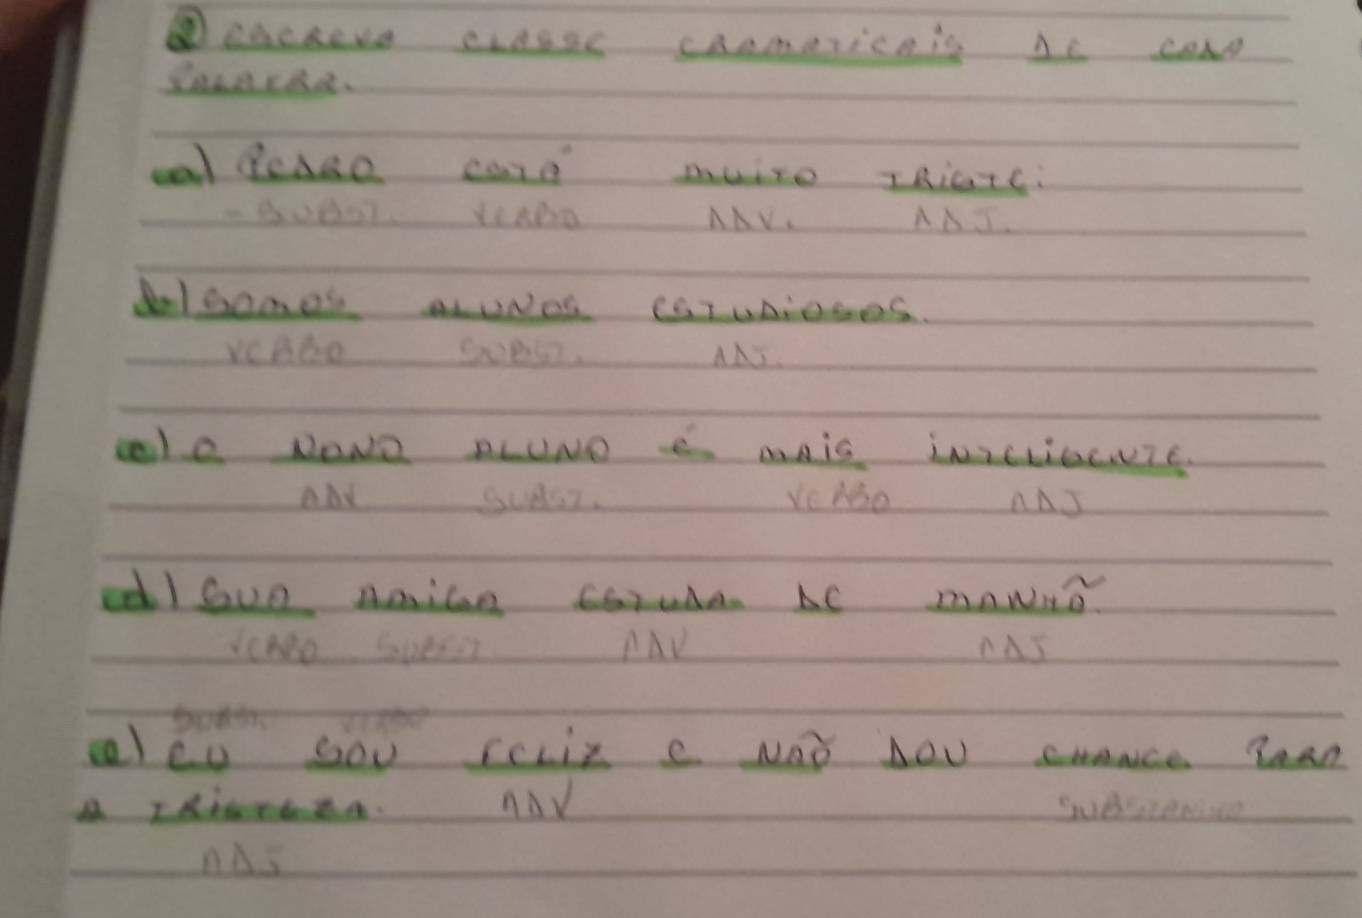 ② ESCREVA CLASSE GRAMATICAIS DE CADA
PALAVRA.
a) PEDRO ESTÁ MUITO TRISTE.
- SUBST. VERBO ADV. ADJ.
b) SOMOS ALUNOS ESTUDIOSOS.
VERBO SUBST. ADJ.
c) O NOVO ALUNO É MAIS INTELIGENTE.
ADV SUBST. VERBO ADJ
d) SUA AMIGA ESTUDA DE MANHÃ.
VERBO SUBST ADV ADJ
SUBST. VERBO
e) EU SOU FELIZ E NÃO DOU CHANCE PARA
A TRISTEZA. ADV SUBSTANTIVO
ADJ